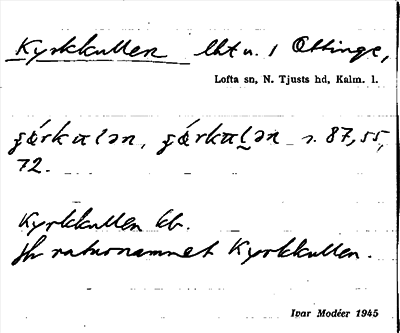 Kyrkkullen lht u. 1 Ottinge,
Lofta sn, N. Tjusts hd, Kalm. l.
s. 87, 55,
72.
Kyrkkullen kb.
Jfr naturnamnet Kyrkkullen.
Ivar Modéer 1945